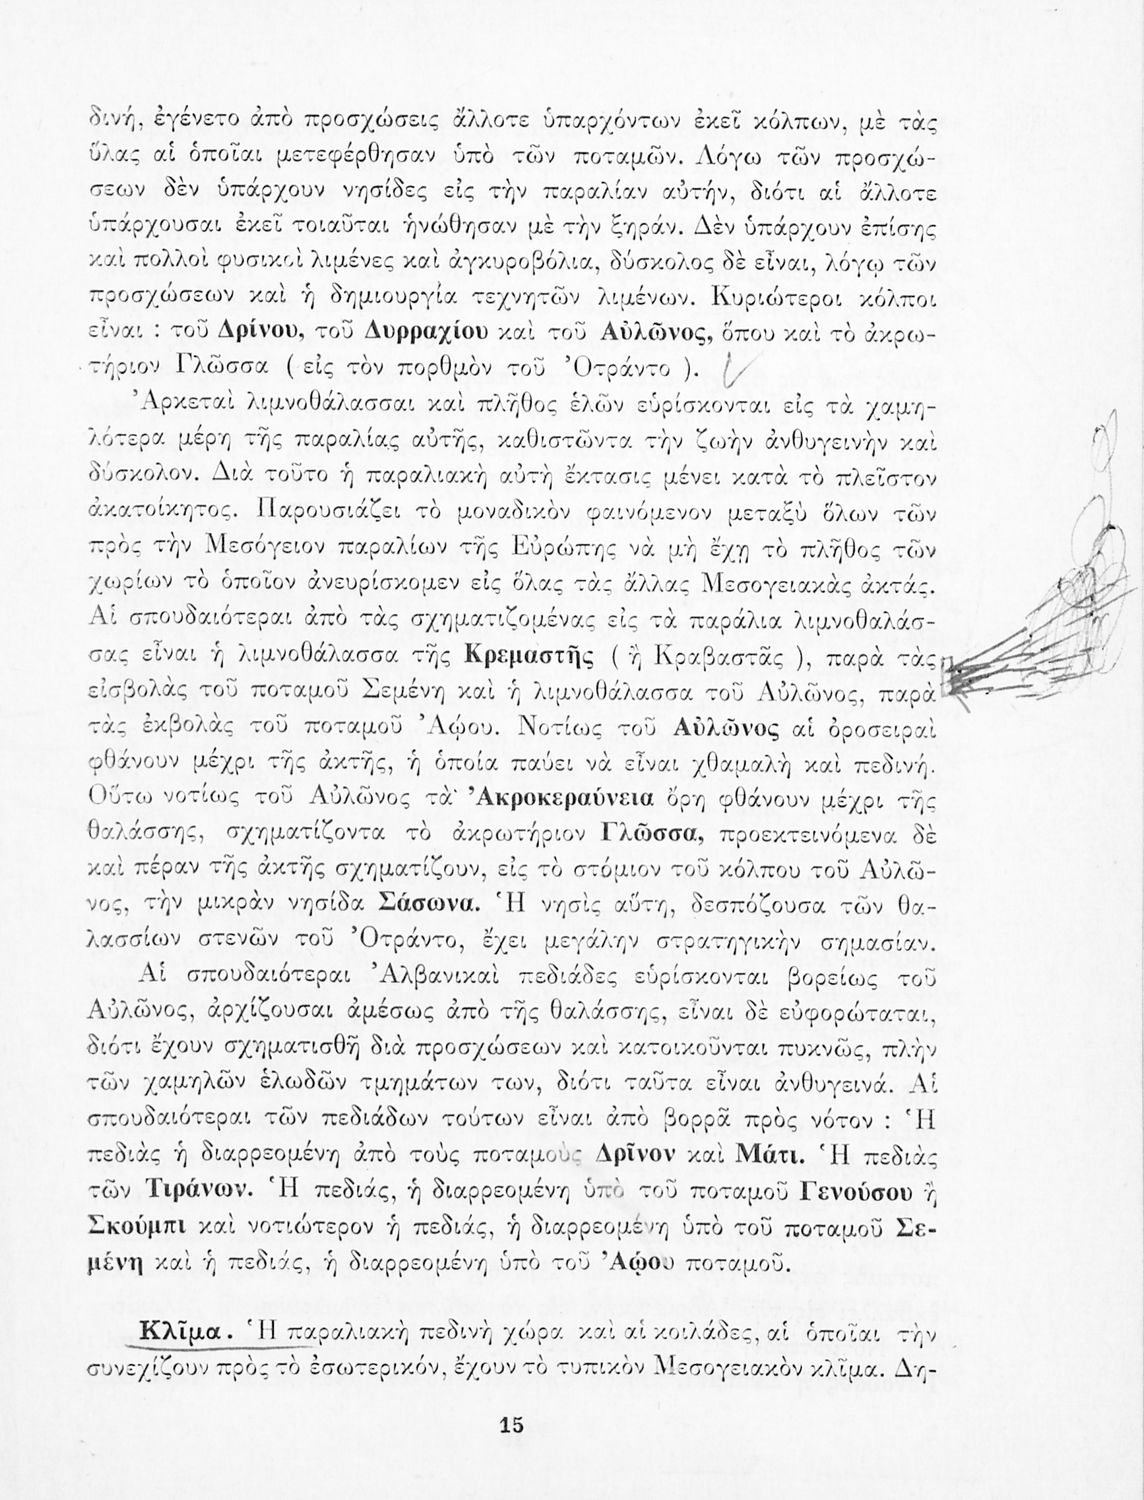 δινή, ἐγένετο ἀπὸ προσχώσεις ἄλλοτε ὑπαρχόντων ἐκεῖ κόλπων, μὲ τὰς
ὕλας αἱ ὁποῖαι μετεφέρθησαν ὑπὸ τῶν ποταμῶν. Λόγω τῶν προσχώ-
σεων δὲν ὑπάρχουν νησίδες εἰς τὴν παραλίαν αὐτήν, διότι αἱ ἄλλοτε
ὑπάρχουσαι ἐκεῖ τοιαῦται ἡνώθησαν μὲ τὴν ξηράν. Δὲν ὑπάρχουν ἐπίσης
καὶ πολλοὶ φυσικοὶ λιμένες καὶ ἀγκυροβόλια, δύσκολος δὲ εἶναι, λόγῳ τῶν
προσχώσεων καὶ ἡ δημιουργία τεχνητῶν λιμένων. Κυριώτεροι κόλποι
εἶναι : τοῦ Δρίνου, τοῦ Δυρραχίου καὶ τοῦ Αὐλῶνος, ὅπου καὶ τὸ ἀκρω-
τήριον Γλῶσσα ( εἰς τὸν πορθμὸν τοῦ Ὀτράντο ).
Ἀρκεταὶ λιμνοθάλασσαι καὶ πλῆθος ἑλῶν εὑρίσκονται εἰς τὰ χαμη-
λότερα μέρη τῆς παραλίας αὐτῆς, καθιστῶντα τὴν ζωὴν ἀνθυγεινὴν καὶ
δύσκολον. Διὰ τοῦτο ἡ παραλιακὴ αὐτὴ ἔκτασις μένει κατὰ τὸ πλεῖστον
ἀκατοίκητος. Παρουσιάζει τὸ μοναδικὸν φαινόμενον μεταξὺ ὅλων τῶν
πρὸς τὴν Μεσόγειον παραλίων τῆς Εὐρώπης νὰ μὴ ἔχῃ τὸ πλῆθος τῶν
χωρίων τὸ ὁποῖον ἀνευρίσκομεν εἰς ὅλας τὰς ἄλλας Μεσογειακὰς ἀκτάς.
Αἱ σπουδαιότεραι ἀπὸ τὰς σχηματιζομένας εἰς τὰ παράλια λιμνοθαλάσ-
σας εἶναι ἡ λιμνοθάλασσα τῆς Κρεμαστῆς ( ἢ Κραβαστᾶς ), παρὰ τὰς
εἰσβολὰς τοῦ ποταμοῦ Σεμένη καὶ ἡ λιμνοθάλασσα τοῦ Αὐλῶνος, παρὰ
τὰς ἐκβολὰς τοῦ ποταμοῦ Ἀῴου. Νοτίως τοῦ Αὐλῶνος αἱ ὀροσειραὶ
φθάνουν μέχρι τῆς ἀκτῆς, ἡ ὁποία παύει νὰ εἶναι χθαμαλὴ καὶ πεδινή.
Οὕτω νοτίως τοῦ Αὐλῶνος τὰ Ἀκροκεραύνεια ὄρη φθάνουν μέχρι τῆς
θαλάσσης, σχηματίζοντα τὸ ἀκρωτήριον Γλῶσσα, προεκτεινόμενα δὲ
καὶ πέραν τῆς ἀκτῆς σχηματίζουν, εἰς τὸ στόμιον τοῦ κόλπου τοῦ Αὐλῶ-
νος, τὴν μικρὰν νησίδα Σάσωνα. Ἡ νησὶς αὕτη, δεσπόζουσα τῶν θα-
λασσίων στενῶν τοῦ Ὀτράντο, ἔχει μεγάλην στρατηγικὴν σημασίαν.
Αἱ σπουδαιότεραι Ἀλβανικαὶ πεδιάδες εὑρίσκονται βορείως τοῦ
Αὐλῶνος, ἀρχίζουσαι ἀμέσως ἀπὸ τῆς θαλάσσης, εἶναι δὲ εὐφορώταται,
διότι ἔχουν σχηματισθῆ διὰ προσχώσεων καὶ κατοικοῦνται πυκνῶς, πλὴν
τῶν χαμηλῶν ἑλωδῶν τμημάτων των, διότι ταῦτα εἶναι ἀνθυγεινά. Αἱ
σπουδαιότεραι τῶν πεδιάδων τούτων εἶναι ἀπὸ βορρᾶ πρὸς νότον : Ἡ
πεδιὰς ἡ διαρρεομένη ἀπὸ τοὺς ποταμοὺς Δρῖνον καὶ Μάτι. Ἡ πεδιὰς
τῶν Τιράνων. Ἡ πεδιάς, ἡ διαρρεομένη ὑπὸ τοῦ ποταμοῦ Γενούσου ἢ
Σκούμπι καὶ νοτιώτερον ἡ πεδιάς, ἡ διαρρεομένη ὑπὸ τοῦ ποταμοῦ Σε-
μένη καὶ ἡ πεδιάς, ἡ διαρρεομένη ὑπὸ τοῦ Ἀῴου ποταμοῦ.
Κλῖμα. Ἡ παραλιακὴ πεδινὴ χώρα καὶ αἱ κοιλάδες, αἱ ὁποῖαι τὴν
συνεχίζουν πρὸς τὸ ἐσωτερικόν, ἔχουν τὸ τυπικὸν Μεσογειακὸν κλῖμα. Δη-
15